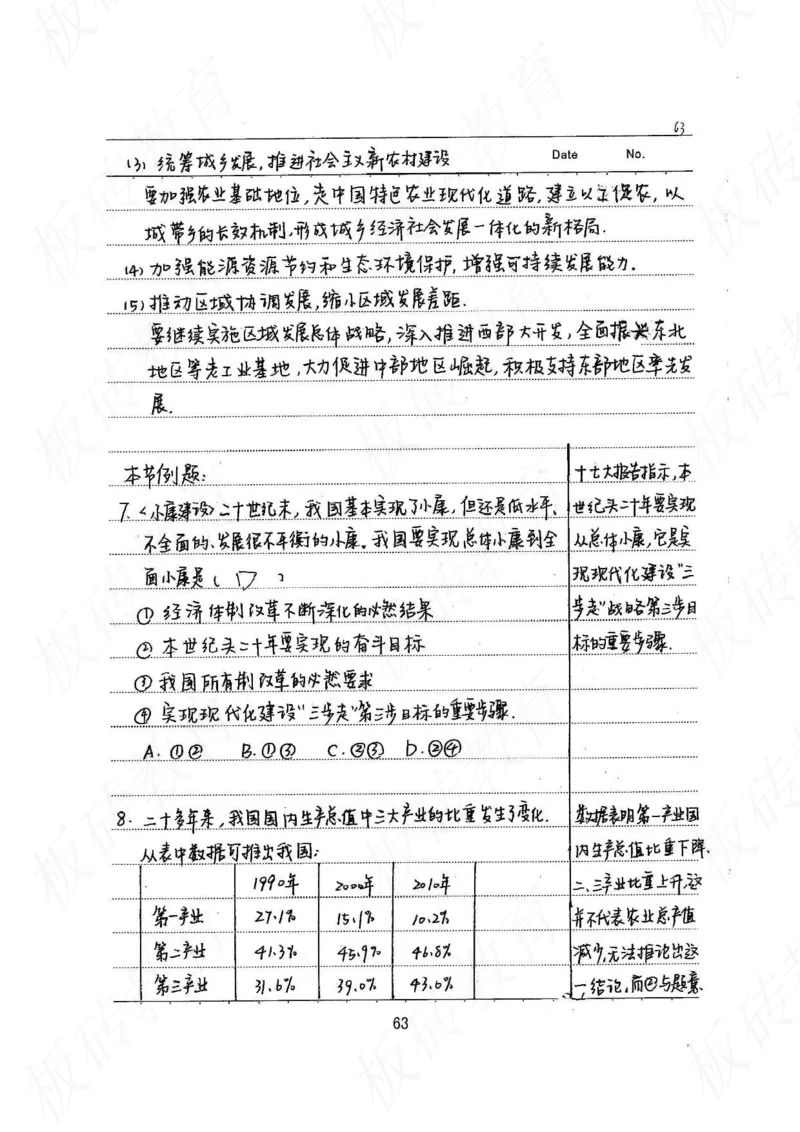 63
(3) 统筹城乡发展,推进社会主义新农村建设 Date No.
要加强农业基础地位,走中国特色农业现代化道路,建立以工促农,以
城带乡的长效机制,形成城乡经济社会发展一体化的新格局.
(4) 加强能源资源节约和生态环境保护,增强可持续发展能力.
(5) 推动区域协调发展,缩小区域发展差距.
要继续实施区域发展总体战略,深入推进西部大开发,全面振兴东北
地区等老工业基地,大力促进中部地区崛起,积极支持东部地区率先发
展.
本节例题:
7.《小康建设》二十世纪末,我国基本实现了小康,但还是低水平、
不全面的、发展很不平衡的小康。我国要实现总体小康到全
面小康是( D )
① 经济体制改革不断深化的必然结果
② 本世纪头二十年要实现的奋斗目标
③ 我国所有制改革的必然要求
④ 实现现代化建设"三步走"第三步目标的重要步骤.
A. ①② B. ①③ C. ②③ D. ②④
十七大报告指示,本
世纪头二十年要实现
从总体小康,它是实
现现代化建设"三
步走"战略第三步目
标的重要步骤.
8. 二十多年来,我国国内生产总值中三大产业的比重发生了变化.
从表中数据可推出我国:
1990年 2000年 2010年
第一产业 27.1% 15.1% 10.2%
第二产业 41.3% 45.9% 46.8%
第三产业 31.6% 39.0% 43.0%
数据表明第一产业国
内生产总值比重下降.
二、三产业比重上升,这
并不代表农业总产值
减少,无法推论出这
一结论,而②与题意
63
板砖教育